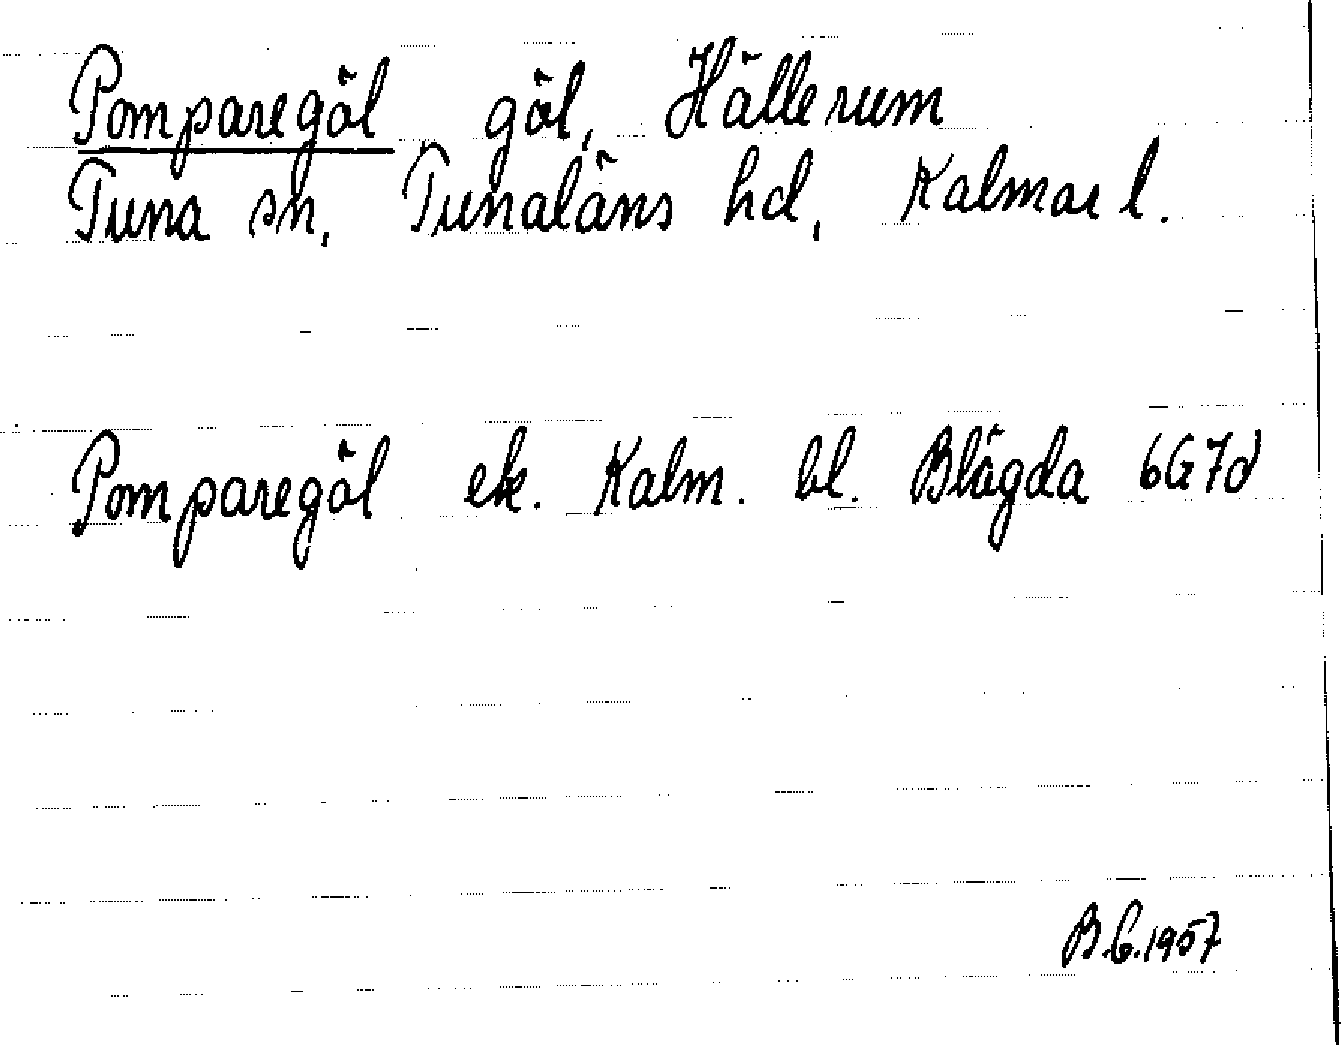 Pomparegöl göl, Hällerum
Tuna sn, Tunaläns hd, Kalmar l.
Pomparegöl ek. Kalm. bl. Blägda 6G7d
B.C. 1957